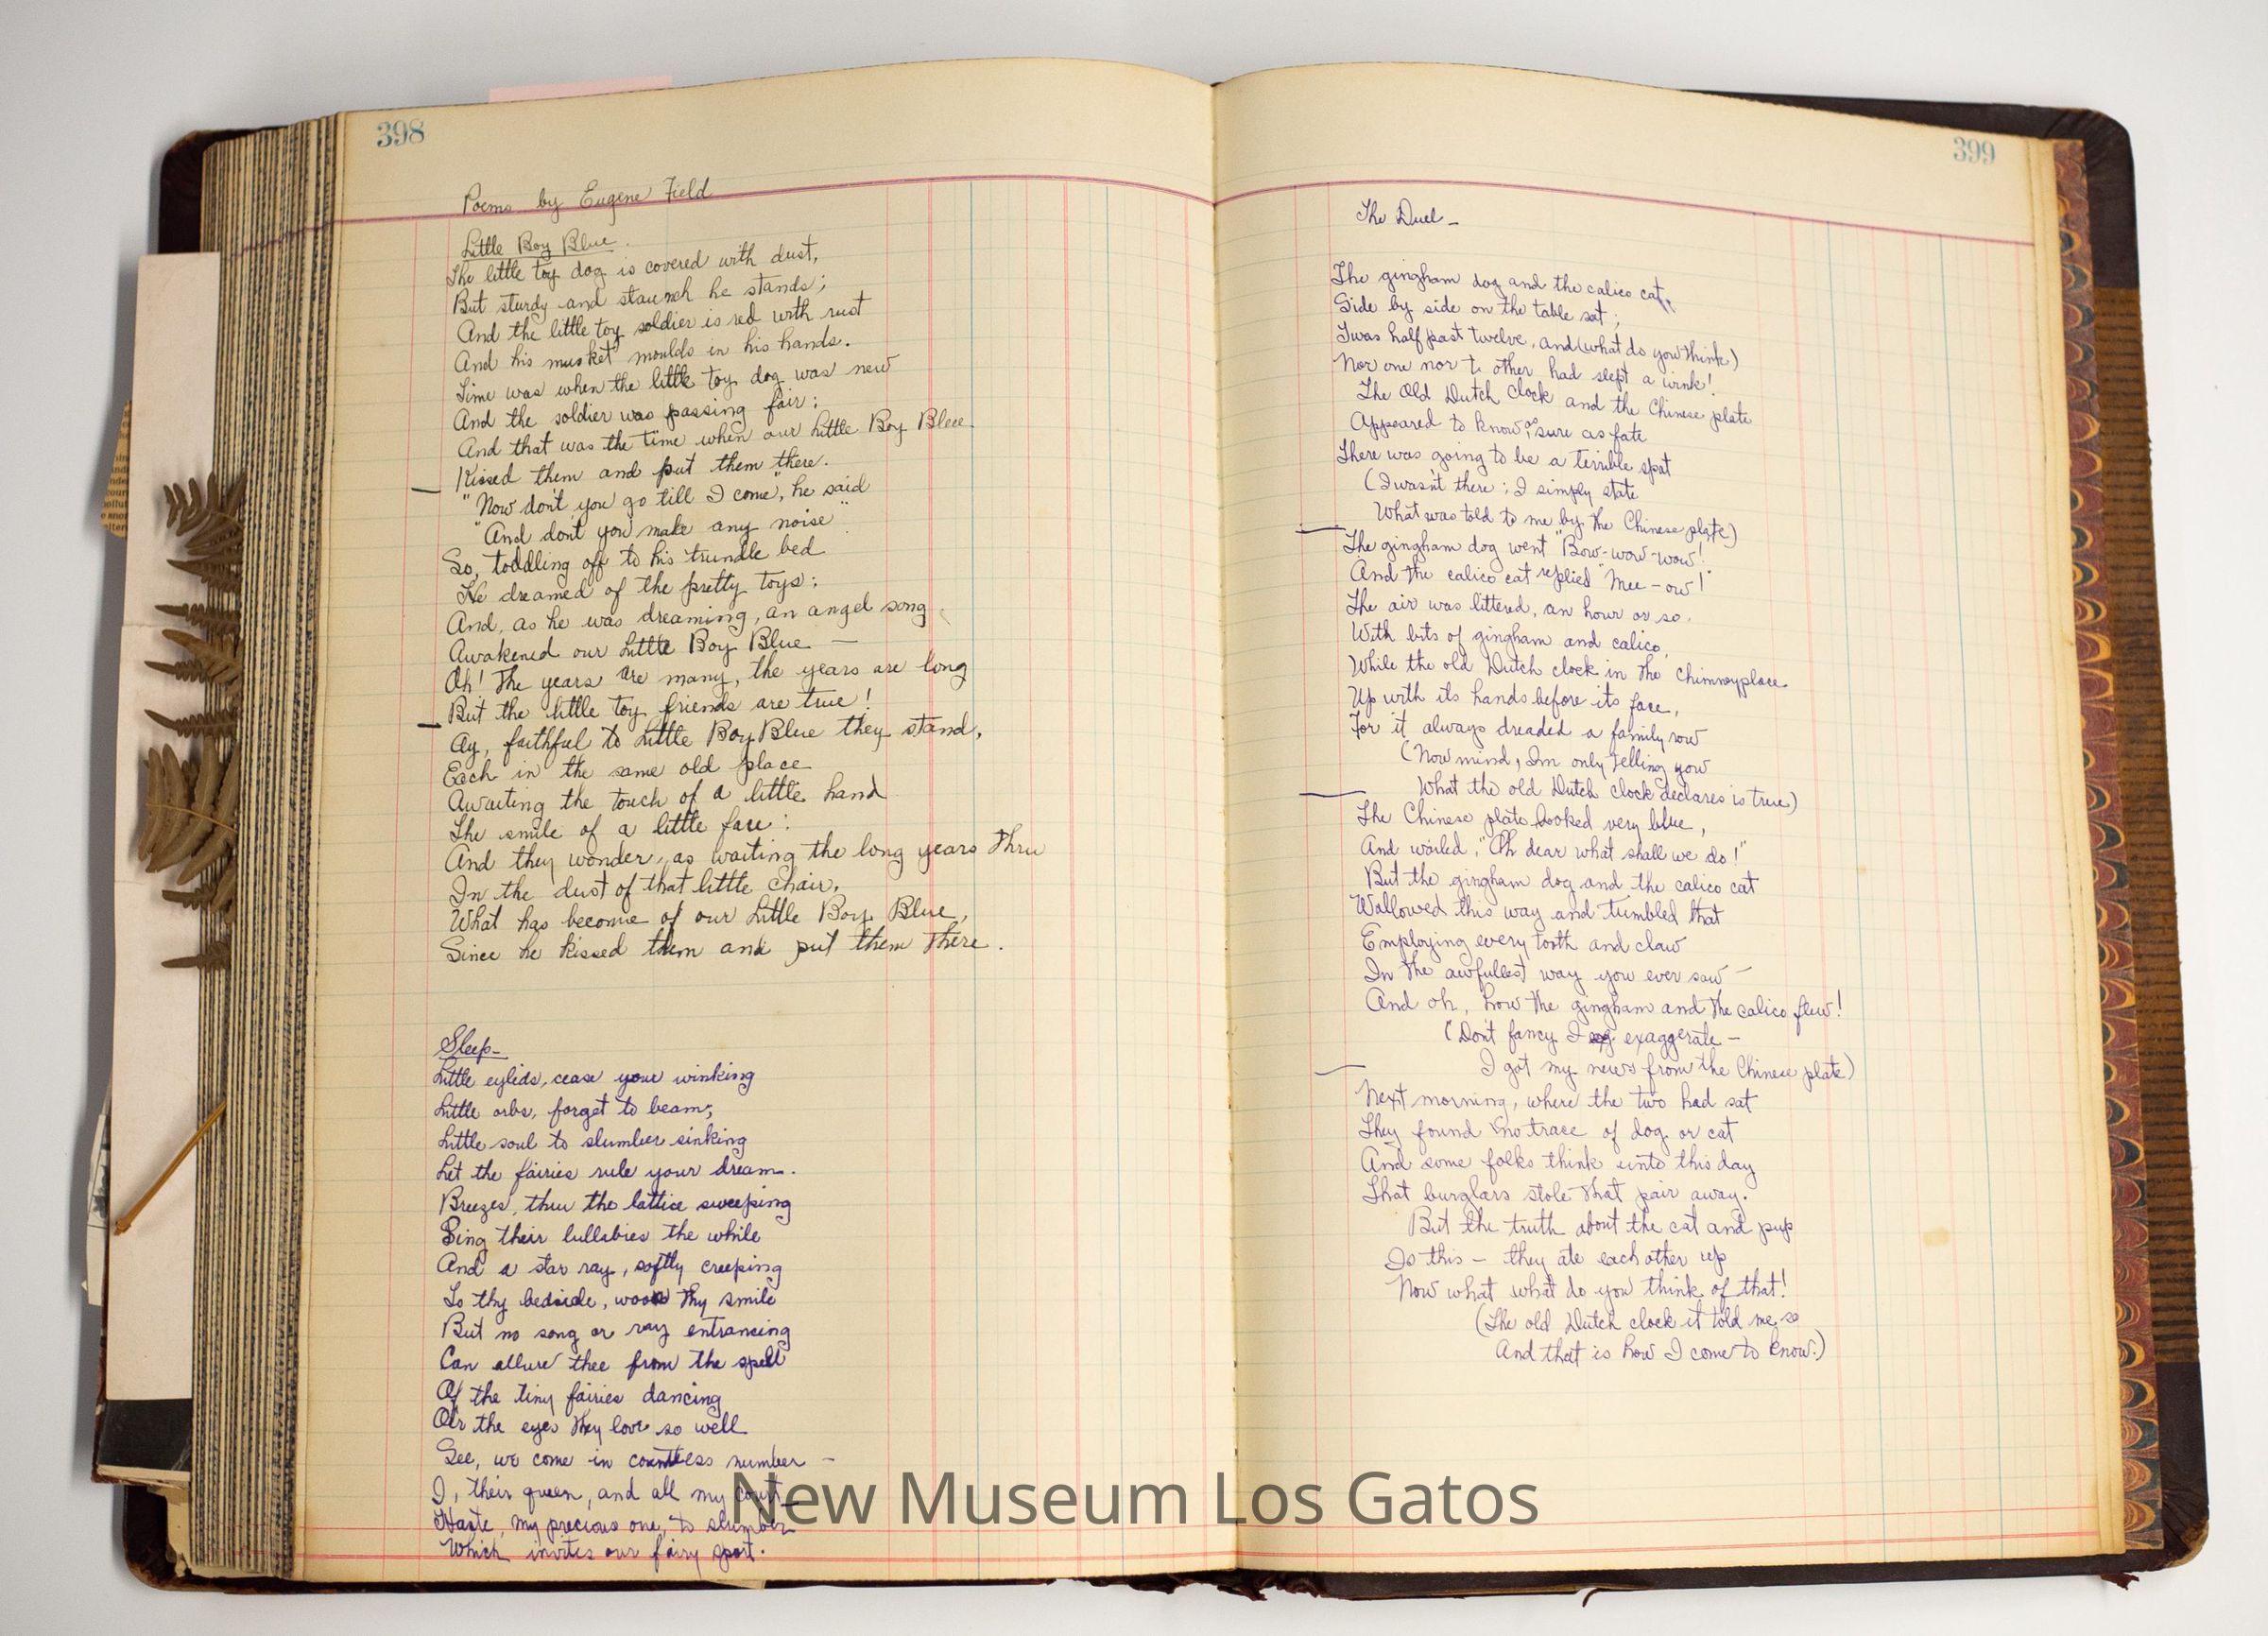 398
Poems by Eugene Field
Little Boy Blue.
The little toy dog is covered with dust,
But sturdy and staunch he stands;
And the little toy soldier is red with rust
And his musket moulds in his hands.
Time was when the little toy dog was new
And the soldier was passing fair;
And that was the time when our Little Boy Blue
Kissed them and put them there.
"Now don't you go till I come", he said
"And don't you make any noise"
So, toddling off to his trundle bed
He dreamed of the pretty toys;
And, as he was dreaming, an angel song
Awakened our Little Boy Blue —
Oh! The years are many, the years are long
But the little toy friends are true!
Ay, faithful to Little Boy Blue they stand,
Each in the same old place
Awaiting the touch of a little hand
The smile of a little face:
And they wonder, as waiting the long years thru
In the dust of that little chair,
What has become of our Little Boy Blue,
Since he kissed them and put them there.
Sleep-
Little eylids, cease your winking
Little orbs, forget to beam;
Little soul to slumber sinking
Let the fairies rule your dream.
Breezes, thru the lattice sweeping
Sing their lullabies the while
And a star ray, softly creeping
To thy bedside, woos thy smile
But no song or ray entrancing
Can allure thee from the spell
Of the tiny fairies dancing
O'er the eyes they love so well
See, we come in countless number —
I, their queen, and all my court
Haste, my precious one, to slumber
Which invites our fairy sport.
399
The Duel-
The gingham dog and the calico cat
Side by side on the table sat;
Twas half past twelve, and (what do you think)
Nor one nor t' other had slept a wink!
The Old Dutch Clock and the Chinese plate
Appeared to know as sure as fate
There was going to be a terrible spat
(I wasn't there; I simply state
What was told to me by the Chinese plate)
The gingham dog went "Bow-wow-wow!"
And the calico cat replied "Mee-ow!"
The air was littered, an hour or so,
With bits of gingham and calico,
While the old Dutch clock in the chimneyplace
Up with its hands before its face,
For it always dreaded a family row
(Now mind, I'm only telling you
What the old Dutch clock declares is true)
The Chinese plate looked very blue,
And wailed, "Oh dear what shall we do!"
But the gingham dog and the calico cat
Wallowed this way and tumbled that
Employing every tooth and claw
In the awfullest way you ever saw —
And oh, how the gingham and the calico flew!
(Don't fancy I exaggerate —
I got my news from the Chinese plate)
Next morning, where the two had sat
They found no trace of dog or cat
And some folks think unto this day
That burglars stole that pair away.
But the truth about the cat and pup
Is this — they ate each other up
Now what what do you think of that!
(The old Dutch clock it told me so
And that is how I come to know.)
New Museum Los Gatos